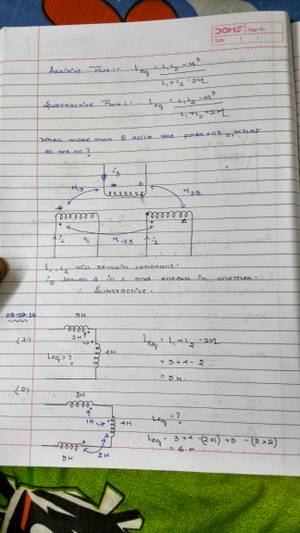 DOMS
Page No.
Date
Additive Flux :- Leq = L₁L₂ - M² / L₁+L₂-2M
Subtractive Flux :- Leq = L₁L₂ - M² / L₁+L₂+2M
When more than 2 coils are present, what
do we do?
i₃
M₁₃
M₂₃
i₁
i₂
M₁₂
L₁, L₂ will remain constant.
i₃ leaves Δ in 1 and enters in another
∴ Subtractive.
(1)
3H
1H
4H
Leq = ?
Leq = L₁+L₂-2M
= 3+4-2
= 5H.
(2)
3H
1H
4H
5H
2H
Leq = ?
Leq = 3+4-(2x1)+5-(2x2)
= 6H